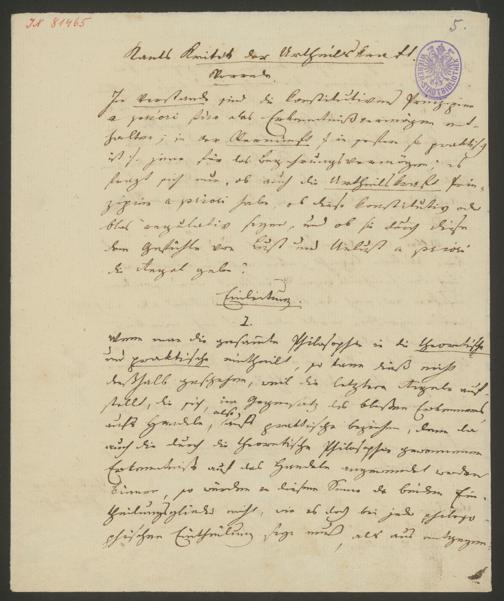 IN 81465
5.
Kants Kritik der Urtheilskraft.
Vorrede
Im Verstand sind die konstitutiven Prinzipien
a priori für das Erkenntnißvermögen ent-
halten; in der Vernunft, so praktisch
ist, jene für das Begehrungsvermögen; es
fragt sich nun, ob auch die Urtheilskraft Prin-
zipien a priori habe, ob diese konstitutiv oder
blos regulativ seyen, und ob sie durch diese
dem Gefühle von Lust und Unlust a priori
die Regel gebe?
Einleitung.
I.
Wenn man die gesammte Philosophie in die theoretische
und praktische eintheilt, so kann dieß nicht
deßhalb geschehen, weil die letztere Regeln auf-
stellt, die sich, im Gegensatz des bloßen Erkennens
aufs Handeln, also aufs praktische beziehen, denn da
auch die durch die theoretische Philosophie gewonnene
Erkenntniß auf das Handeln angewendet werden
könne, so würden in diesem Sinne die beiden Ein-
theilungsglieder nicht, wie es doch bei jeder philoso-
phischen Eintheilung seyn muß, als aus entgegen